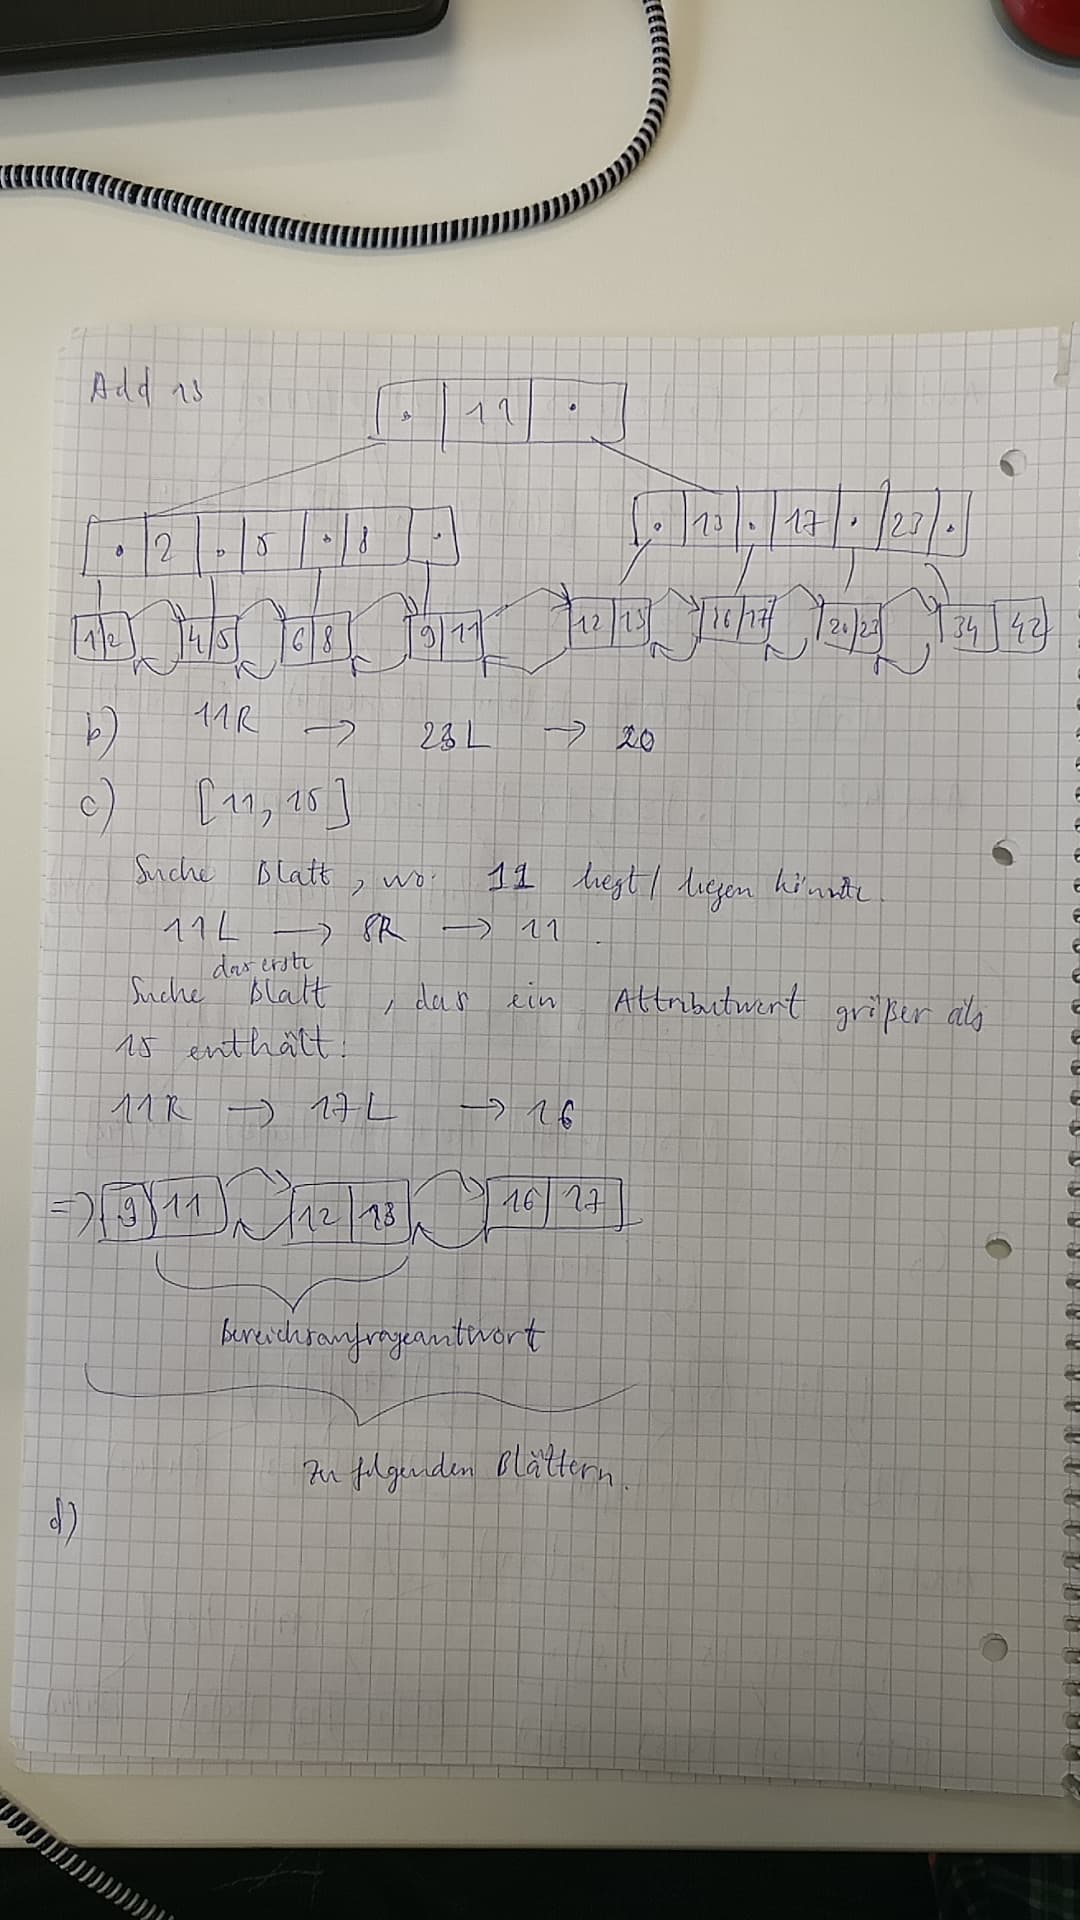 Add 13
. 11 .
. 2 . 5 . 8 . . 13 . 17 . 23 .
1 2 4 5 6 8 9 11 12 13 16 17 20 23 34 42
b) 11R → 23L → 20
c) [11, 15]
Suche Blatt, wo 11 liegt / liegen könnte.
11L → 8R → 11.
das erste
Suche Blatt, das ein Attributwert größer als
15 enthält:
11R → 17L → 16
=> 9 11 12 13 16 17
Bereichsanfrageantwort
Zu folgenden Blättern.
d)